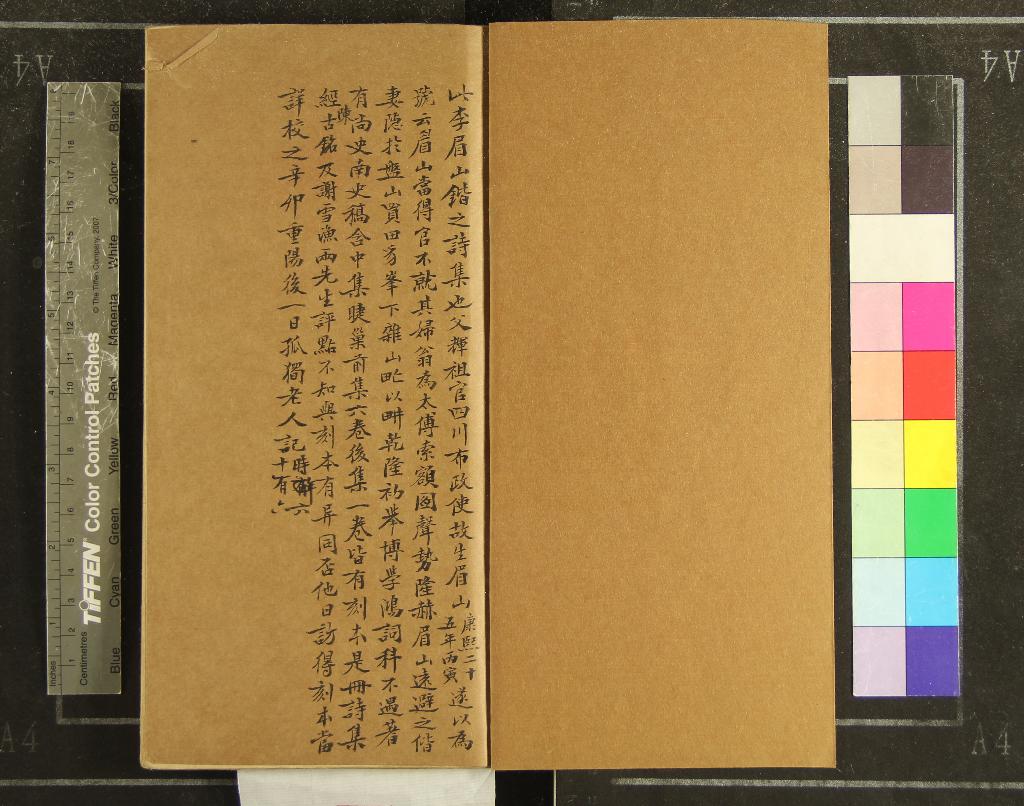 此李眉山鍇之詩集也父輝祖官四川布政使故生眉山康熙二十五年丙寅遂以為
號云眉山當得官不就其婦翁為太傅索額圖聲勢隆赫眉山遠避之偕
妻隐於盤山買田豸峯下雜山甿以畊乾隆初舉博學鴻詞科不遇著
有尚史南史稿含中集睫巢前集六卷後集一卷皆有刻本是冊詩集
經陳古銘及謝雪漁兩先生評點不知與刻本有异同否他日訪得刻本當
詳校之辛卯重陽後一日孤獨老人記時年六十有六
A4
A4
A4
A4
Inches
Centimetres
TIFFEN Color Control Patches
© The Tiffen Company, 2007
Blue Cyan Green Yellow Red Magenta White 3/Color Black
1 2 3 4 5 6 7 8 9 10 11 12 13 14 15 16 17 18 19
1 2 3 4 5 6 7